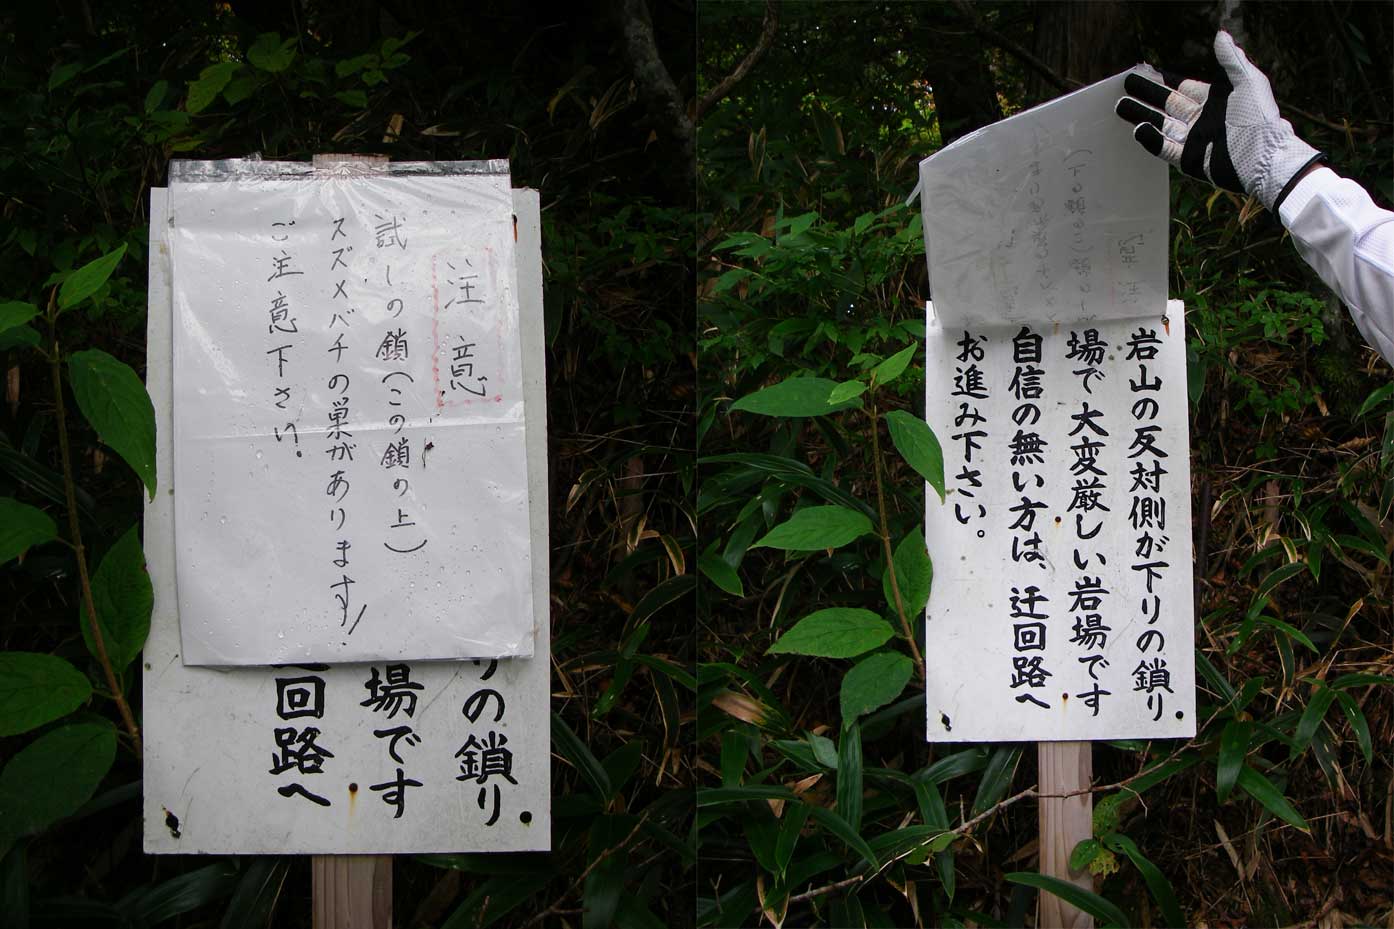 注意
試しの鎖(この鎖の上)
スズメバチの巣があります!
ご注意下さい。
りの鎖り
場です
回路へ
岩山の反対側が下りの鎖り
場で大変厳しい岩場です
自信の無い方は、迂回路へ
お進み下さい。